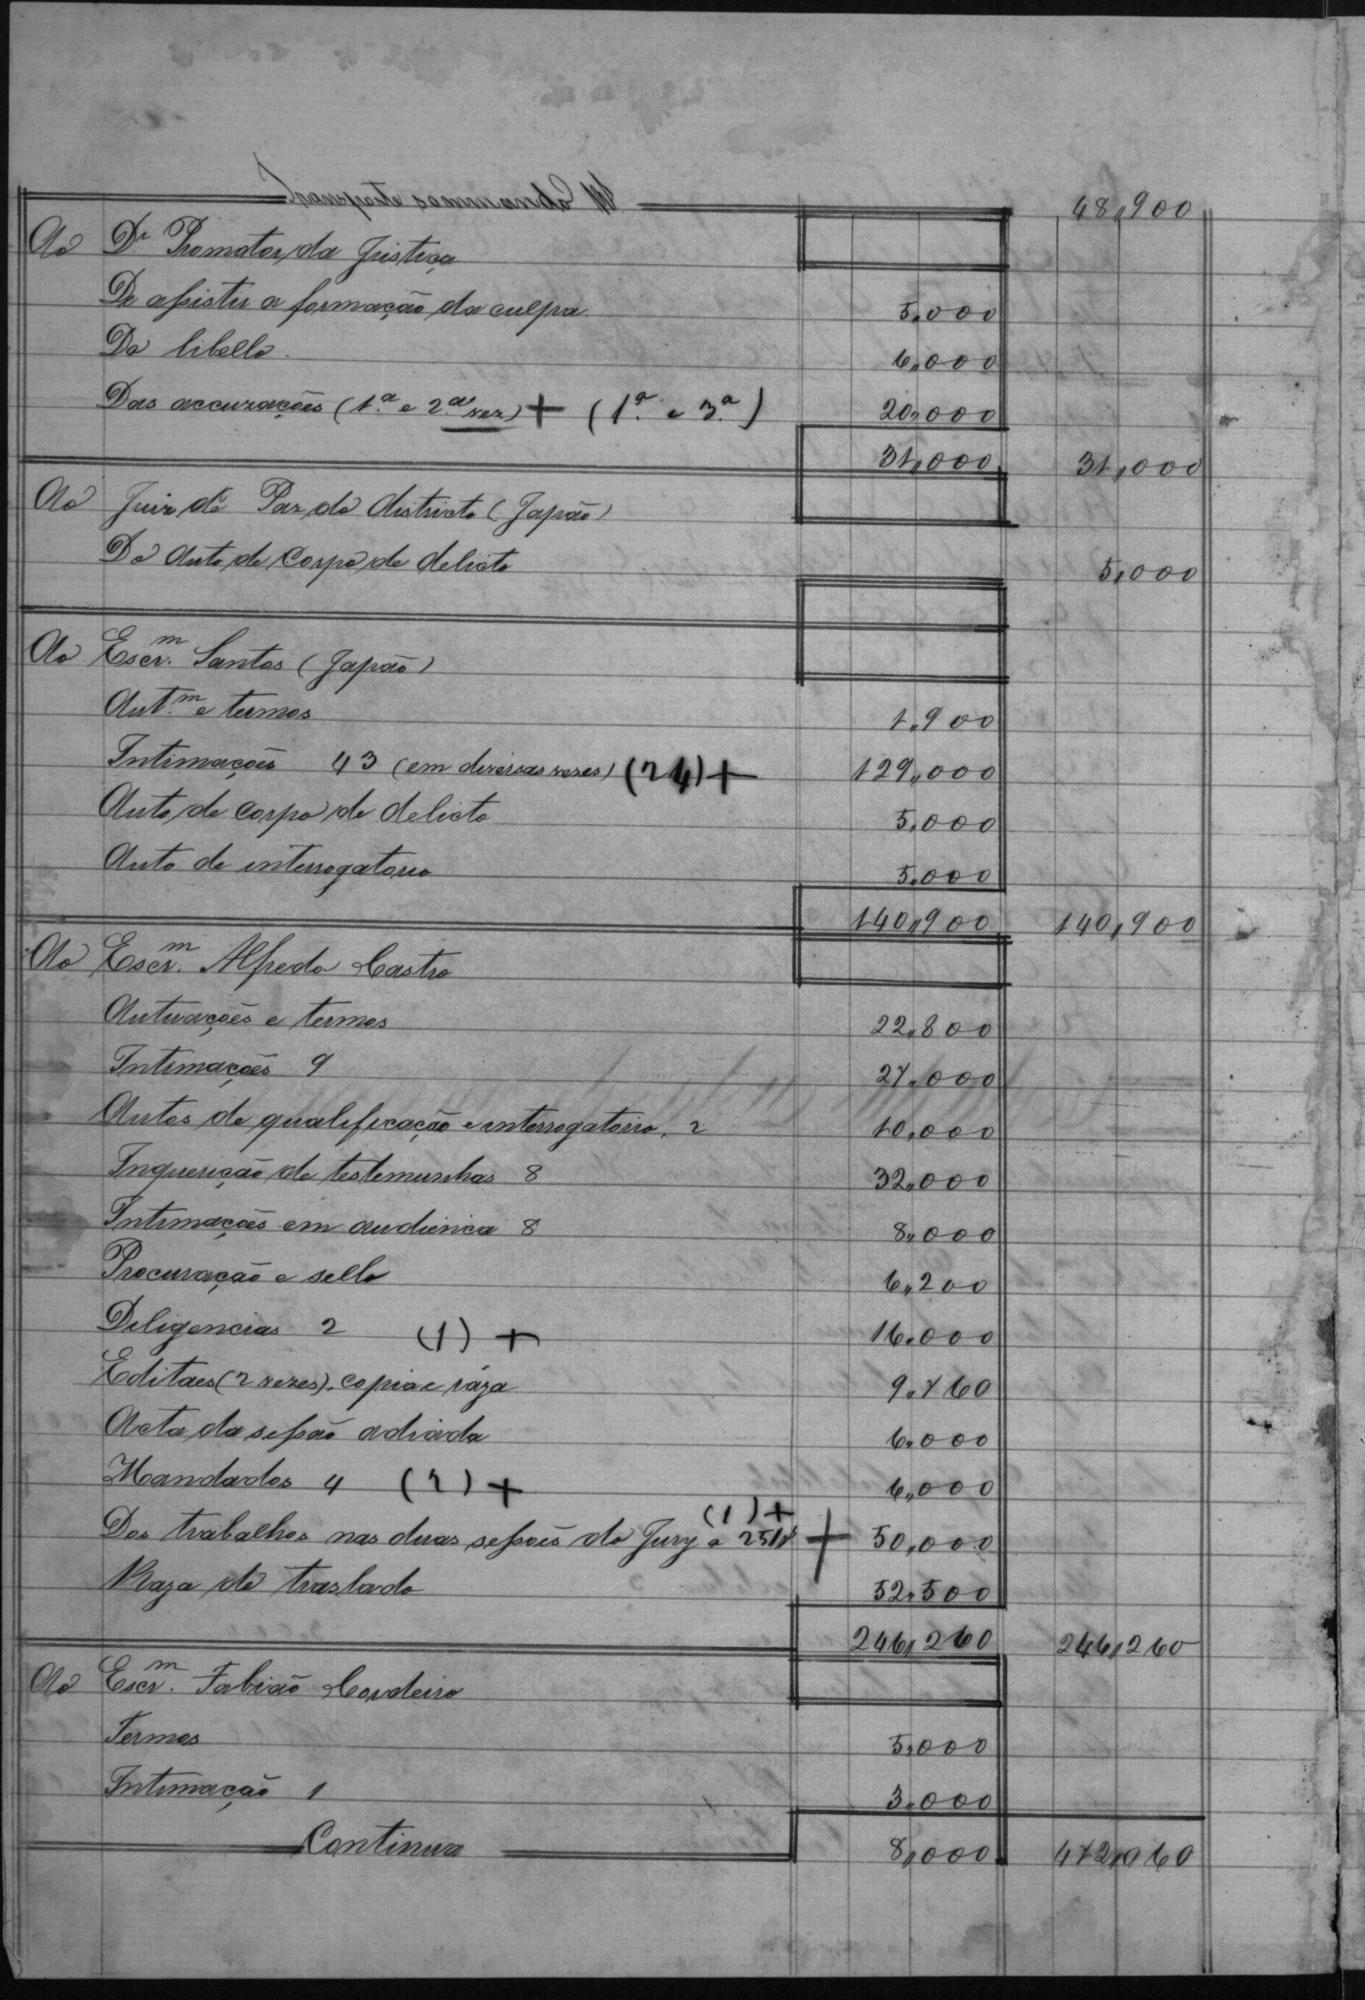 Transporte sommando Rs 48,900
Ao Dr Promotor da Justiça
De assistir a formação da culpa 5,000
Do libello. 6,000
Das accuzações (1.ª e 2.ª vez) + (1.ª e 3.ª) 20,000
31,000 31,000
Ao Juiz de Paz do districto (Japão)
Do Auto de Corpo de delicto 5,000
Ao Escr.m Santos (Japão)
Aut.m e termos 1,900
Intimações 43 (em diversas vezes) (24) + 129,000
Auto de corpo de delicto 5,000
Auto de interrogatorio 5,000
140,900 140,900
Ao Escr.m Alfredo Castro
Autuações e termos 22,800
Intimações 9 27,000
Autos de qualificação e interrogatorio, 2 10,000
Inquerição de testemunhas 8 32,000
Intimações em audiencia 8 8,000
Procuração e sello 6,200
Diligencias 2 (1) + 16,000
Editaes (2 vezes), copia e ráza 9,760
Acta da sessão adiada 6,000
Mandados 4 (2) + 6,000
(1) +
Dos trabalhos nas duas sessões do Jury a 25$ + 50,000
Raza de traslado 52,500
246,260 246,260
Ao Escr.m Fabião Cordeiro
Termos 5,000
Intimação 1 3,000
Continua 8,000 472,060